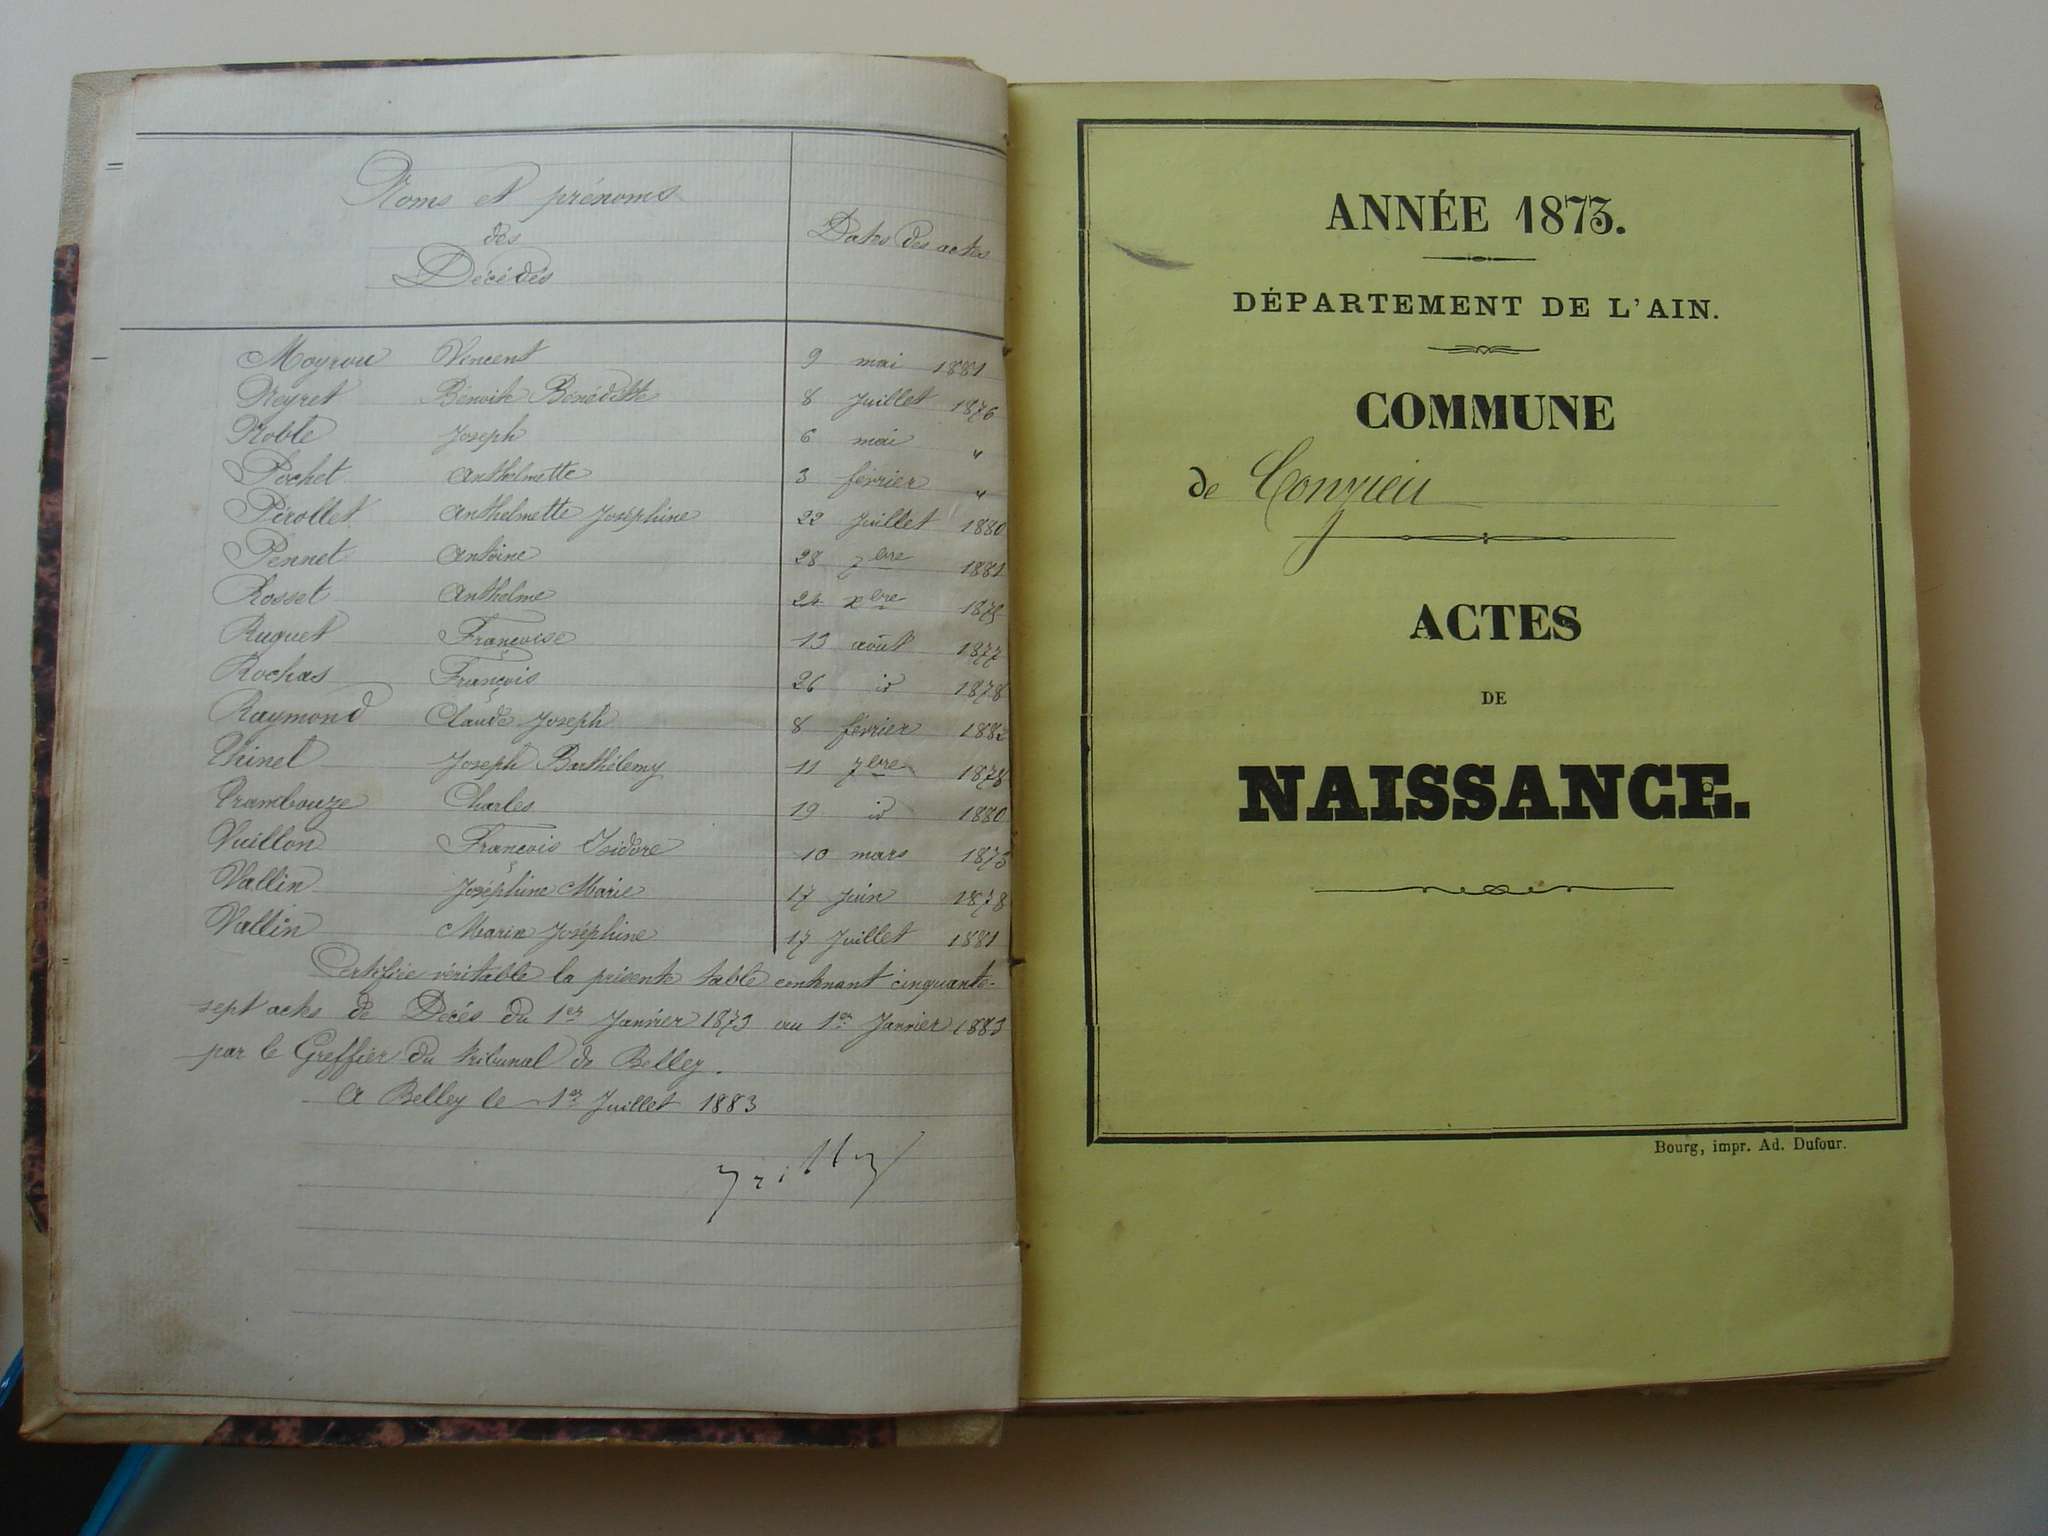 Noms et prénoms
des
Décédés
Dates des actes
Moyrou Vincent 9 mai 1881
Neyret Benoite Bénéditte 8 Juillet 1876
Noble Joseph 6 mai "
Pochet Anthelmette 3 février "
Pérollet Anthelmette Joséphine 22 Juillet 1880
Pennet Antoine 28 7bre 1881
Rosset Anthelme 24 xbre 1875
Ruguet Françoise 13 août 1877
Rochas François 26 id 1878
Raymond Claude Joseph 8 février 1882
Thinel Joseph Barthélemy 11 7bre 1878
Trambouze Charles 19 id 1880
Vuillon François Isidore 10 mars 1873
Vallin Joséphine Marie 17 Juin 1878
Vallin Marie Joséphine 17 Juillet 1881
Certifiée véritable la présente table contenant cinquante-
sept actes de Décès du 1er Janvier 1873 au 1er Janvier 1883
par le Greffier du tribunal de Belley.
A Belley le 1er Juillet 1883
ANNÉE 1873.
DÉPARTEMENT DE L'AIN.
COMMUNE
de Conzieu
ACTES
DE
NAISSANCE.
Bourg, impr. Ad. Dufour.